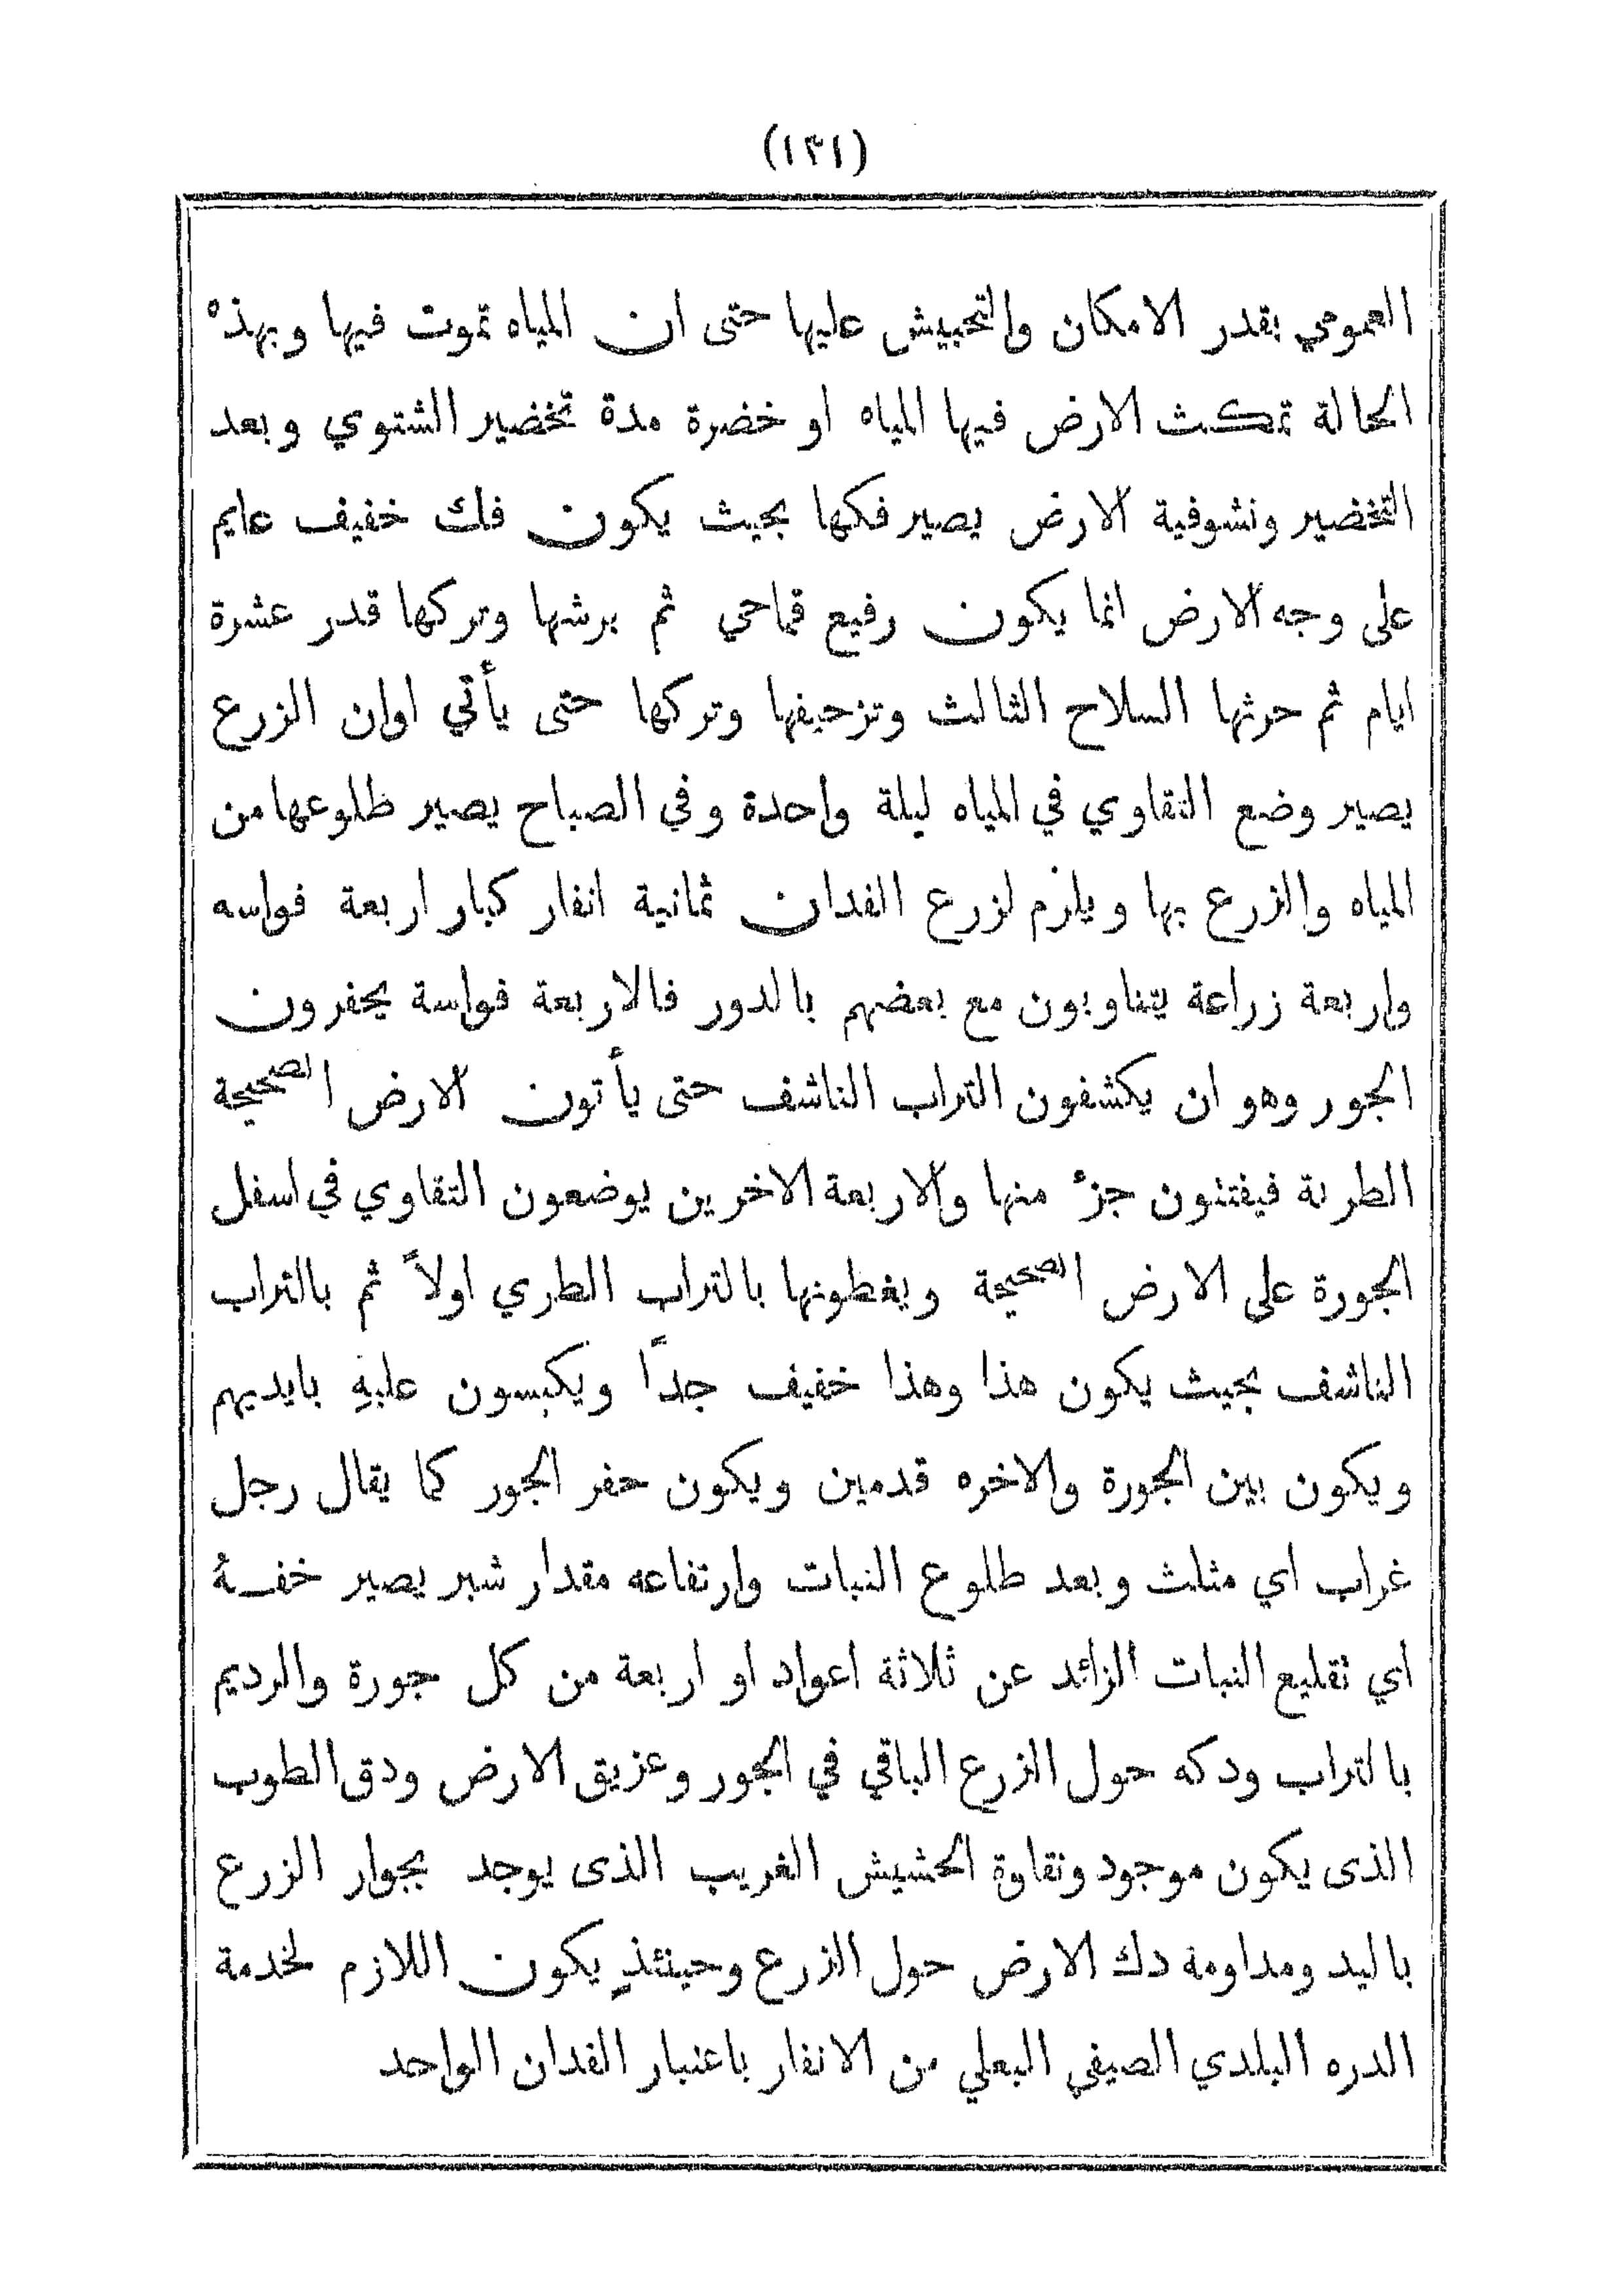 (١٣١)
العمومي بقدر الامكان والتحبيش عليها حتى ان المياه تموت فيها وبهذه
الحالة تمكث الارض فيها المياه او خضرة مدة تخضير الشتوي وبعد
التخضير ونشوفية الارض يصير فكها بحيث يكون فك خفيف عايم
على وجه الارض انما يكون رفيع قماحي ثم برشها وتركها قدر عشرة
ايام ثم حرثها السلاح الثالث وتزحيفها وتركها حتى يأتي اوان الزرع
يصير وضع التقاوي في المياه ليلة واحدة وفي الصباح يصير طلوعها من
المياه والزرع بها ويلزم لزرع الفدان ثمانية انفار كبار اربعة فواسه
واربعة زراعة يتناوبون مع بعضهم بالدور فالاربعة فواسة يحفرون
الجور وهو ان يكشفون التراب الناشف حتى يأتون الارض الصحيحة
الطرية فيفتتون جزء منها والاربعة الاخرين يوضعون التقاوي في اسفل
الجورة على الارض الصحيحة ويغطونها بالتراب الطري اولاً ثم بالتراب
الناشف بحيث يكون هذا وهذا خفيف جداً ويكبسون عليهِ بايديهم
ويكون بين الجورة والاخره قدمين ويكون حفر الجور كما يقال رجل
غراب اي مثلث وبعد طلوع النبات وارتفاعه مقدار شبر يصير خفـهُ
اي تقليع النبات الزائد عن ثلاثة اعواد او اربعة من كل جورة والرديم
بالتراب ودكه حول الزرع الباقي في الجور وعزيق الارض ودق الطوب
الذى يكون موجود ونقاوة الحشيش الغريب الذى يوجد بجوار الزرع
باليد ومداومة دك الارض حول الزرع وحينئذٍ يكون اللازم لخدمة
الدره البلدي الصيفي البعلي من الانفار باعتبار الفدان الواحد